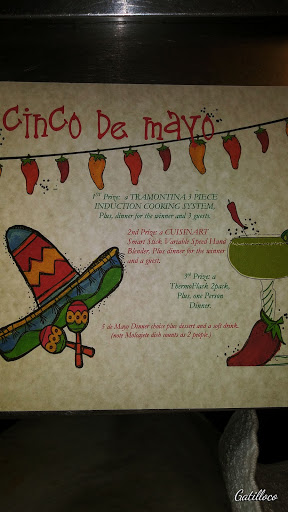 Cinco De Mayo
1ST Prize: a TRAMONTINA 3 PIECE
INDUCTION COOKING SYSTEM.
Plus, dinner for the winner and 3 guests.
2nd Prize: a CUISINART
Smart Stick Variable Speed Hand
Blender. Plus dinner for the winner
and a guest.
3rd Prize: a
ThermoFlask 2pack.
Plus, one Person
Dinner.
5 de Mayo Dinner choice plus dessert and a soft drink.
(note Molcajete dish counts as 2 people.)
Gatilloco